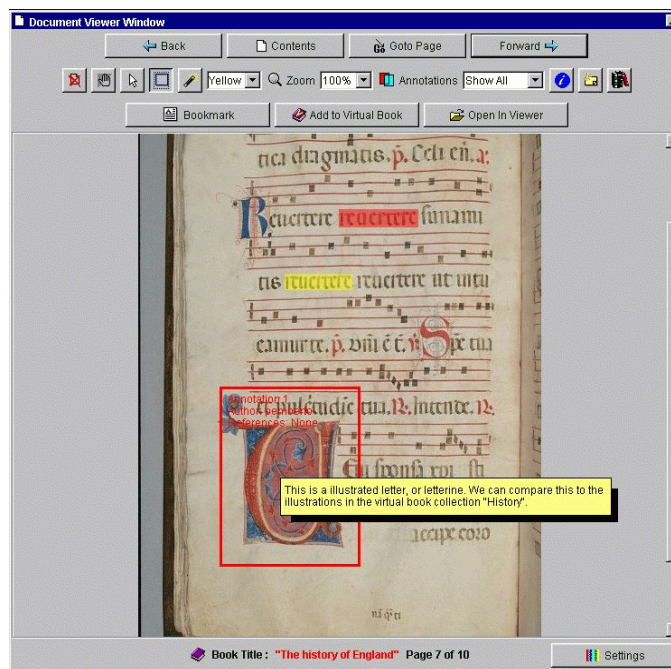 Document Viewer Window
Back Contents Goto Page Forward
Yellow Zoom 100% Annotations Show All
Bookmark Add to Virtual Book Open In Viewer
tica diagmatis. p. Celi en. a.
Reuertere reuertere sunami
tis reuertere reuertere ut intu
eamur te. p. viii Spe tua
et pulcritudie tua. R. Intende. R.
Annotation 1
Author: pemberto
References: None
sponsa xpi
This is a illustrated letter, or letterine. We can compare this to the
illustrations in the virtual book collection "History".
accipe coro
Book Title : "The history of England" Page 7 of 10 Settings